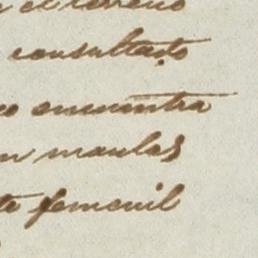 el terreno
consultado
encuentra
maulas
femenil